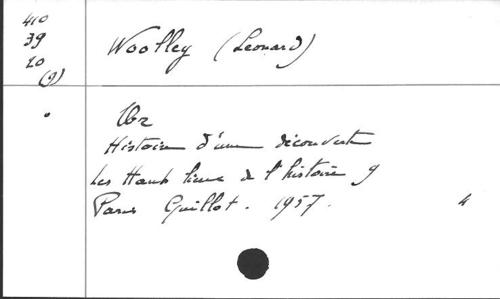 410
39
20
(9)
Woolley (Leonard)
Ur
Histoire d'une découverte
Les Hauts lieux de l'histoire 9
Paris Guillot. 1957.
4